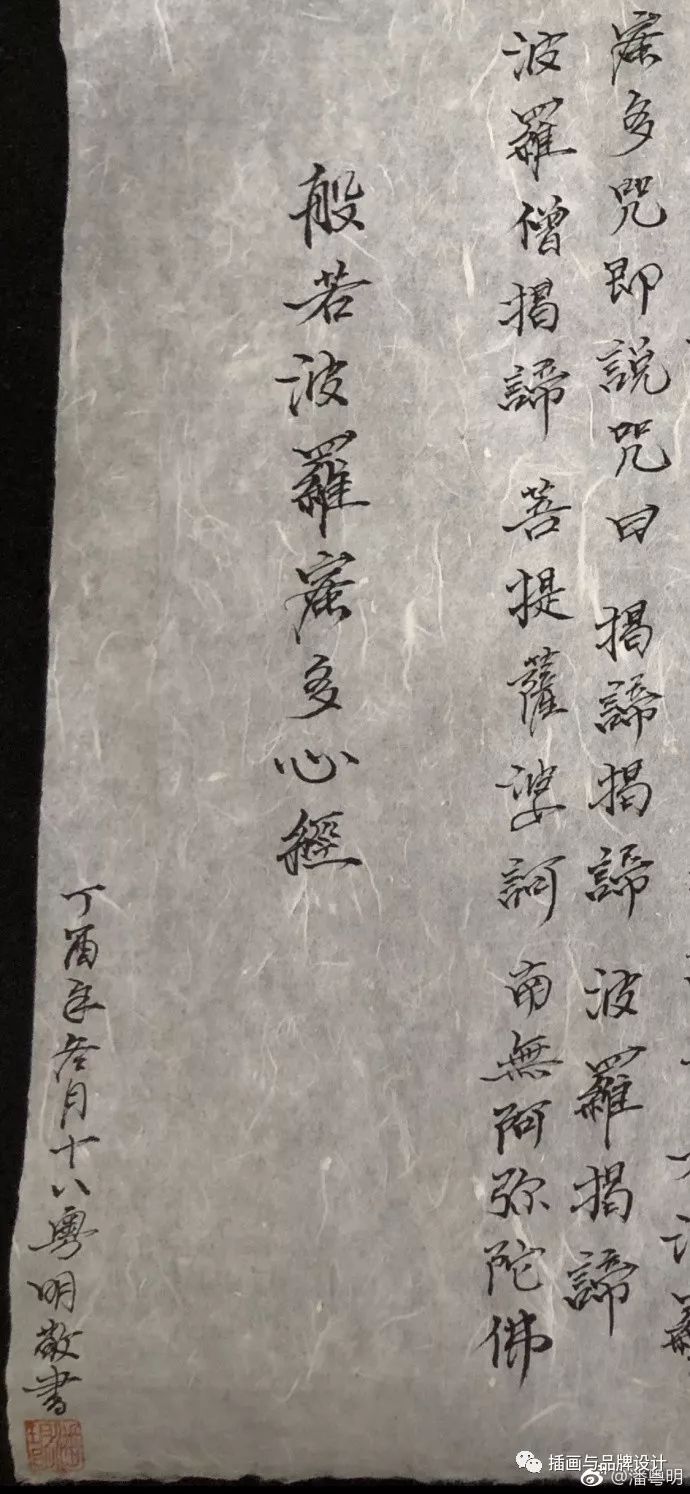 蜜多咒即說咒曰 揭諦揭諦 波羅揭諦
波羅僧揭諦 菩提薩婆訶 南無阿弥陀佛
般若波羅蜜多心經
丁酉年冬月十八粤明敬書
插画与品牌设计
@潘粤明